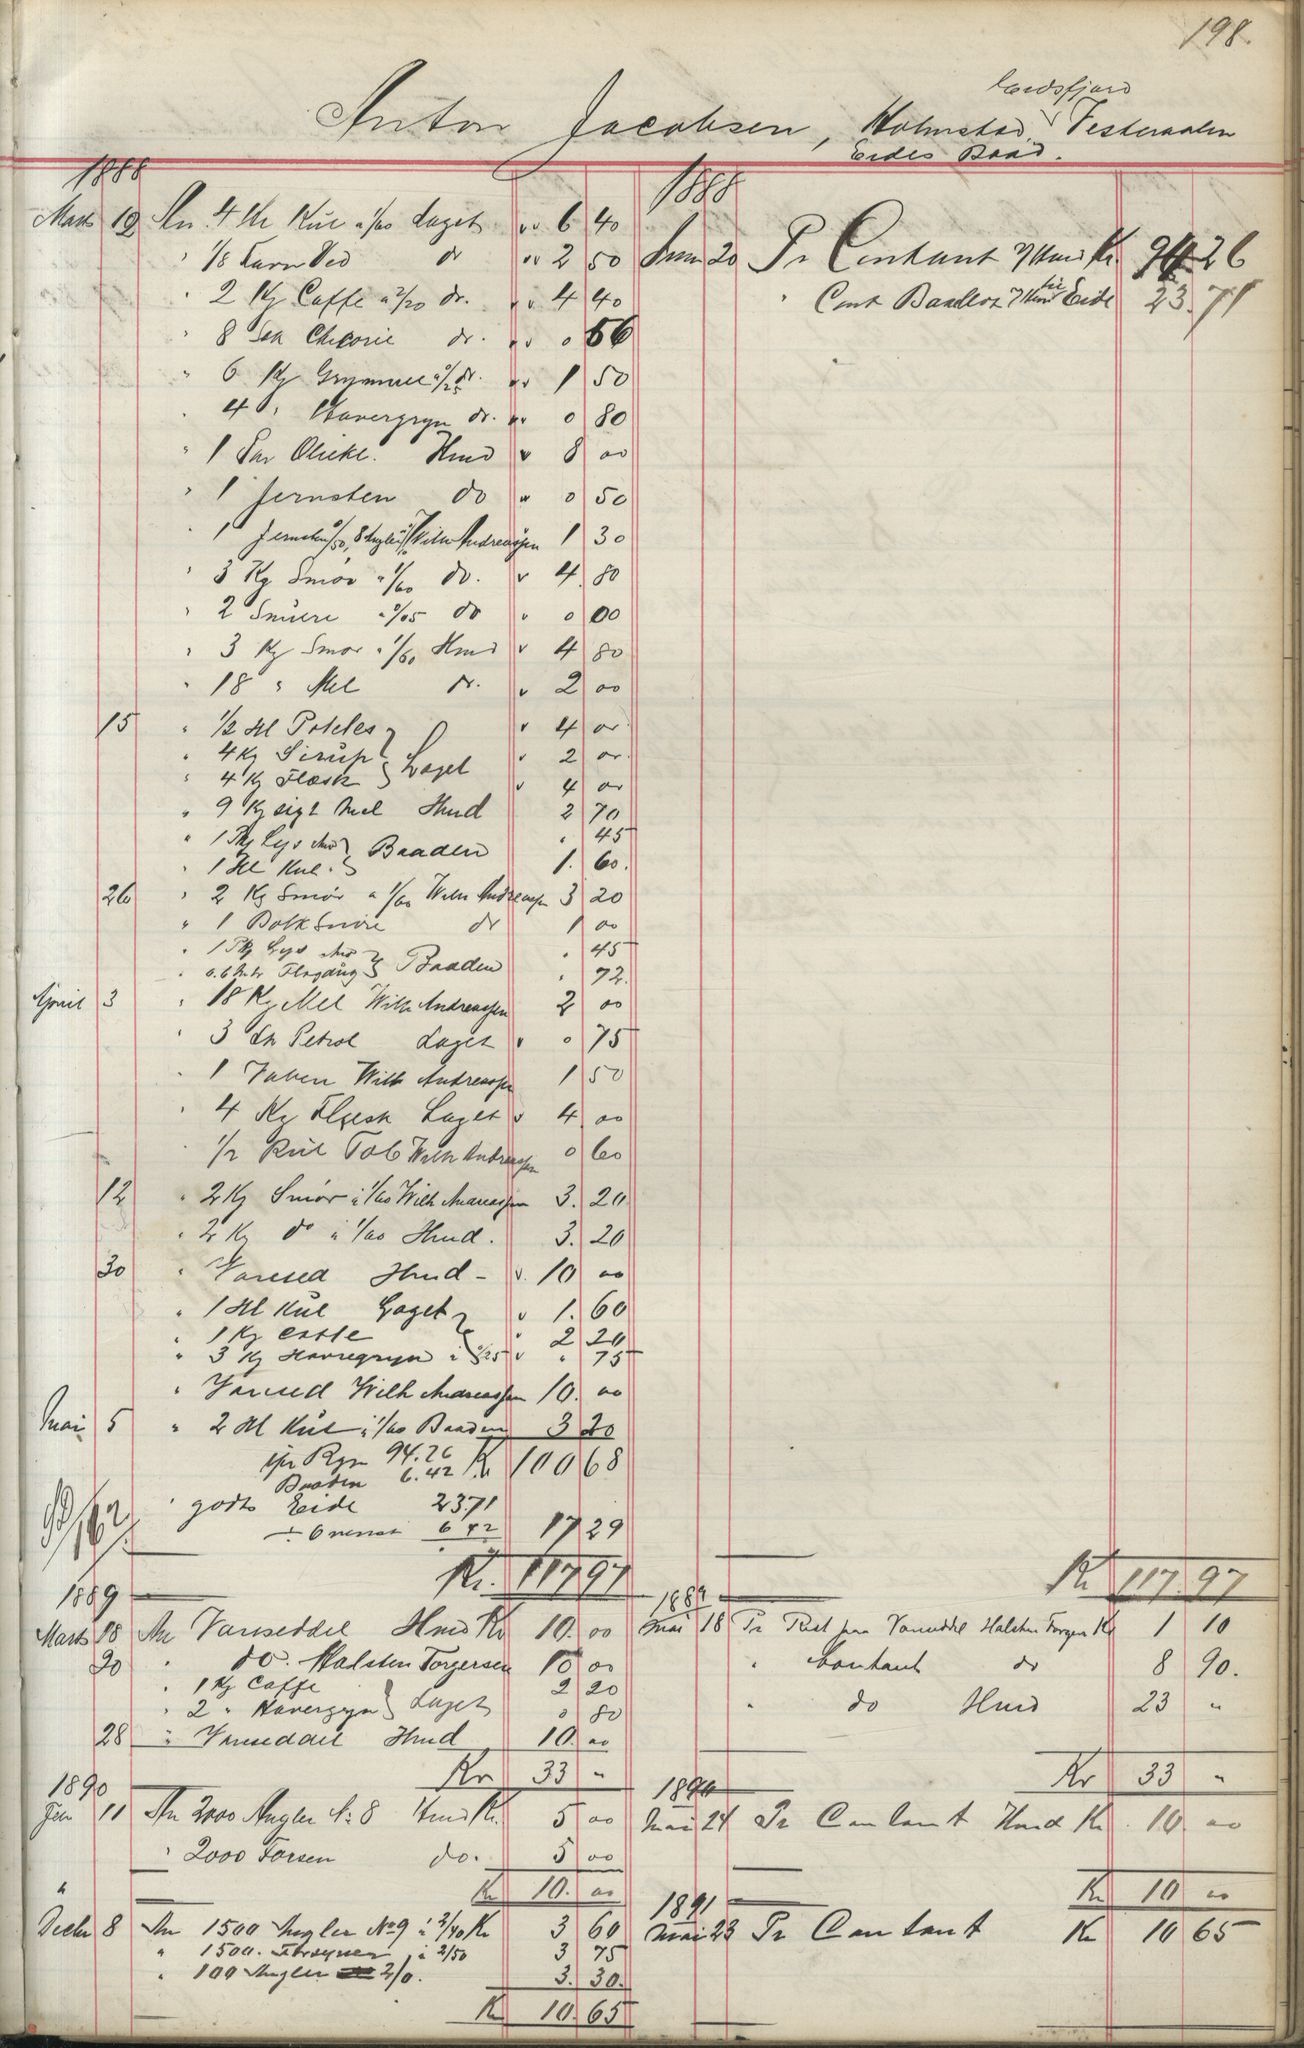 198.
Eidsfjord
Anton Jacobsen, Holmstad, Vesteraalen
Eides Baad.
1888
Marts 12 An 4 Hl Kul a 1/60 Laget " 6 40
" 1/8 Favn Ved do " 2 50
" 2 Kg Caffe a 2/20 do. " 4 40
" 8 Chicorie do. " 0 56
" 6 Kg a 0/25 do. " 1 50
" 4 " Havergryn do. " 0 80
" 1 Par Oliekl. Hmd " 8 00
" 1 Jernsten do " 0 50
" 1 Jernsten 0/50, 8 Angler Wilh Andreassen 1 30
" 3 Kg Smør a 1/60 do. " 4.80
" 2 Snuere a 0/05 do " 0 00
" 3 Kg Smør a 1/60 Hmd " 4 80
" 18 " Mel do. " 2 00
15 " 1/2 Hl Potetes " 4 00
" 4 Kg Sirup Laget " 2 00
" 4 Kg Flæsk " 4 00
" 9 Kg sigt Mel Hmd 2 70
" 1 Lys Baaden " 45
" 1 Hl Kul 1. 60.
26 " 2 Kg Smør a 1/60 Wilh Andreassen 3 20
" 1 do 1 00
" 1 Lys Baaden " 45
" 0.6 Flagdug " 72.
April 3 " 18 Kg Mel Wilh Andreassen 2 00
" 3 Ltr Petrol Laget " 0 75
" 1 Wilh Andreassen 1 50
" 4 Kg Flæsk Laget " 4.00
" 1/2 Rul Tob Wilh Andreassen 0 60
12 " 2 Kg Smør a 1/60 Wilh Andreassen 3. 20
" 2 Kg do a 1/60 Hmd. 3. 20
30 " Varesed Hmd - " 10 00
" 1 Hl Kul Laget " 1.60
" 1 Kg Caffe " 2 20
" 3 Kg Havregryn a 0/25 " " 75
" Varesed Wilh Andreassen 10. 00
Mai 5 " 2 Hl Kul a 1/60 Baaden 3 20
pr Rgn 94.26 Kr 100 68
Baaden 6.42
" godts Eide 23.71
÷ Ovenst 6 42 17 29
Kr. 117 97
1888
Juni 20 Pr Contant Hmd Kr. 94 26
" Cont Baadens fri Eide 23.71
Kr 117.97
1889
Marts 18 An Vareseddel Hmd Kr 10. 00
20 " do. Halsten Torgersen 10 00
" 1 Kg Caffe Laget 2 20
" 2 " Havergryn 0 80
28 " Vareseddel Hmd 10. 00
Kr 33 "
1889
Mai 18 Pr Rest paa Vareseddel Halsten Torgersen Kr 1 10
" Contant do 8 90.
" do Hmd 23 "
Kr 33 "
1890
Feb 11 An 2000 Angler No 8 Hmd Kr. 5 00
" 2000 Forsen do. 5 00
Kr 10. 00
1890
Mai 24 Pr Contant Hmd Kr 10. 00
Kr 10 00
"
Decbr 8 An 1500 Angler No 9 a 2/40 Kr 3 60
" 1500. Forsyner a 2/50 3 75
" 100 Angler 2/0. 3. 30.
Kr 10. 65
1891
Mai 23 Pr Contant Kr 10 65